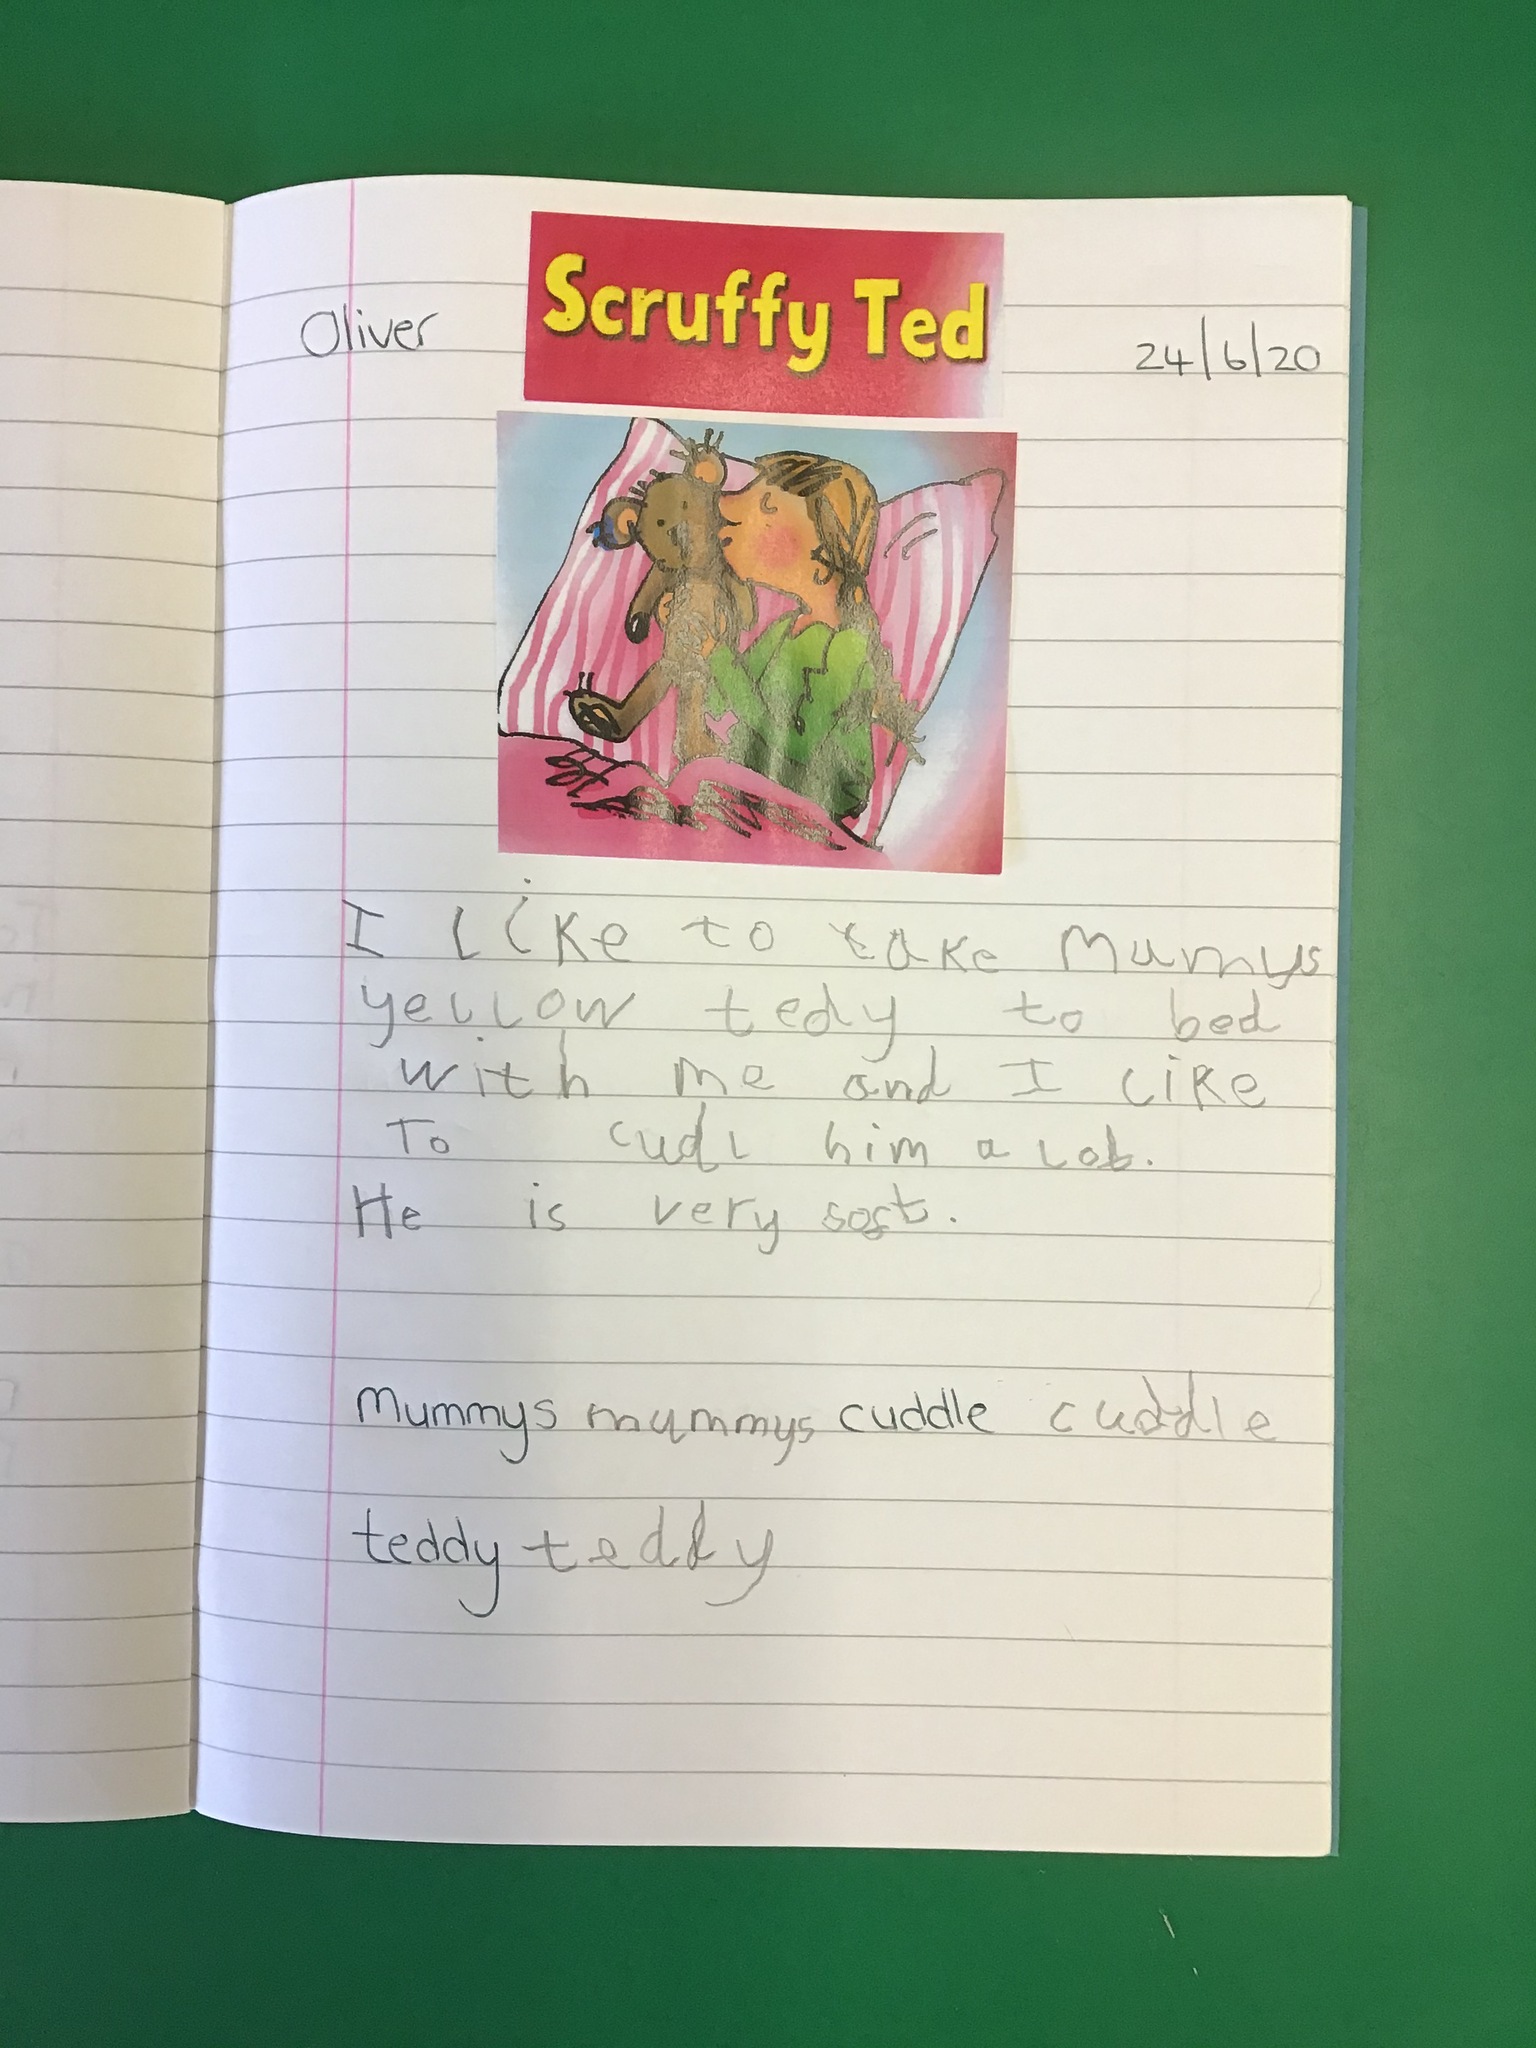 Scruffy Ted
Oliver
24/6/20
I like to take Mumys
yellow tedy to bed
with me and I like
To cudl him a lot.
He is very soft.
Mummys mummys cuddle cuddle
teddy teddy